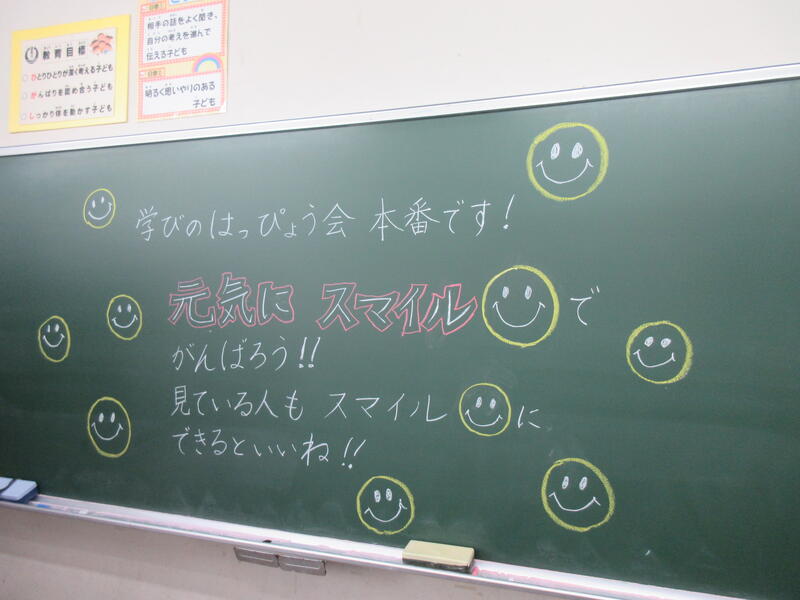 教育目標
ひとりひとりが深く考える子ども
がんばりを認め合う子ども
しっかり体を動かす子ども
相手の話をよく聞き、
自分の考えを進んで
伝える子ども
明るく思いやりのある
子ども
学びのはっぴょう会 本番です!
元気に スマイル で
がんばろう!!
見ている人も スマイル に
できるといいね!!